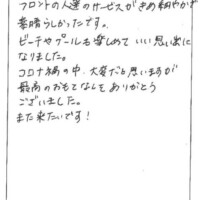 フロントの人達のサービスがきめ細やかで
素晴らしかったです。
ビーチやプールも楽しめていい思い出に
なりました。
コロナ禍の中、大変だと思いますが
最高のおもてなしをありがとう
ございました。
また来たいです！